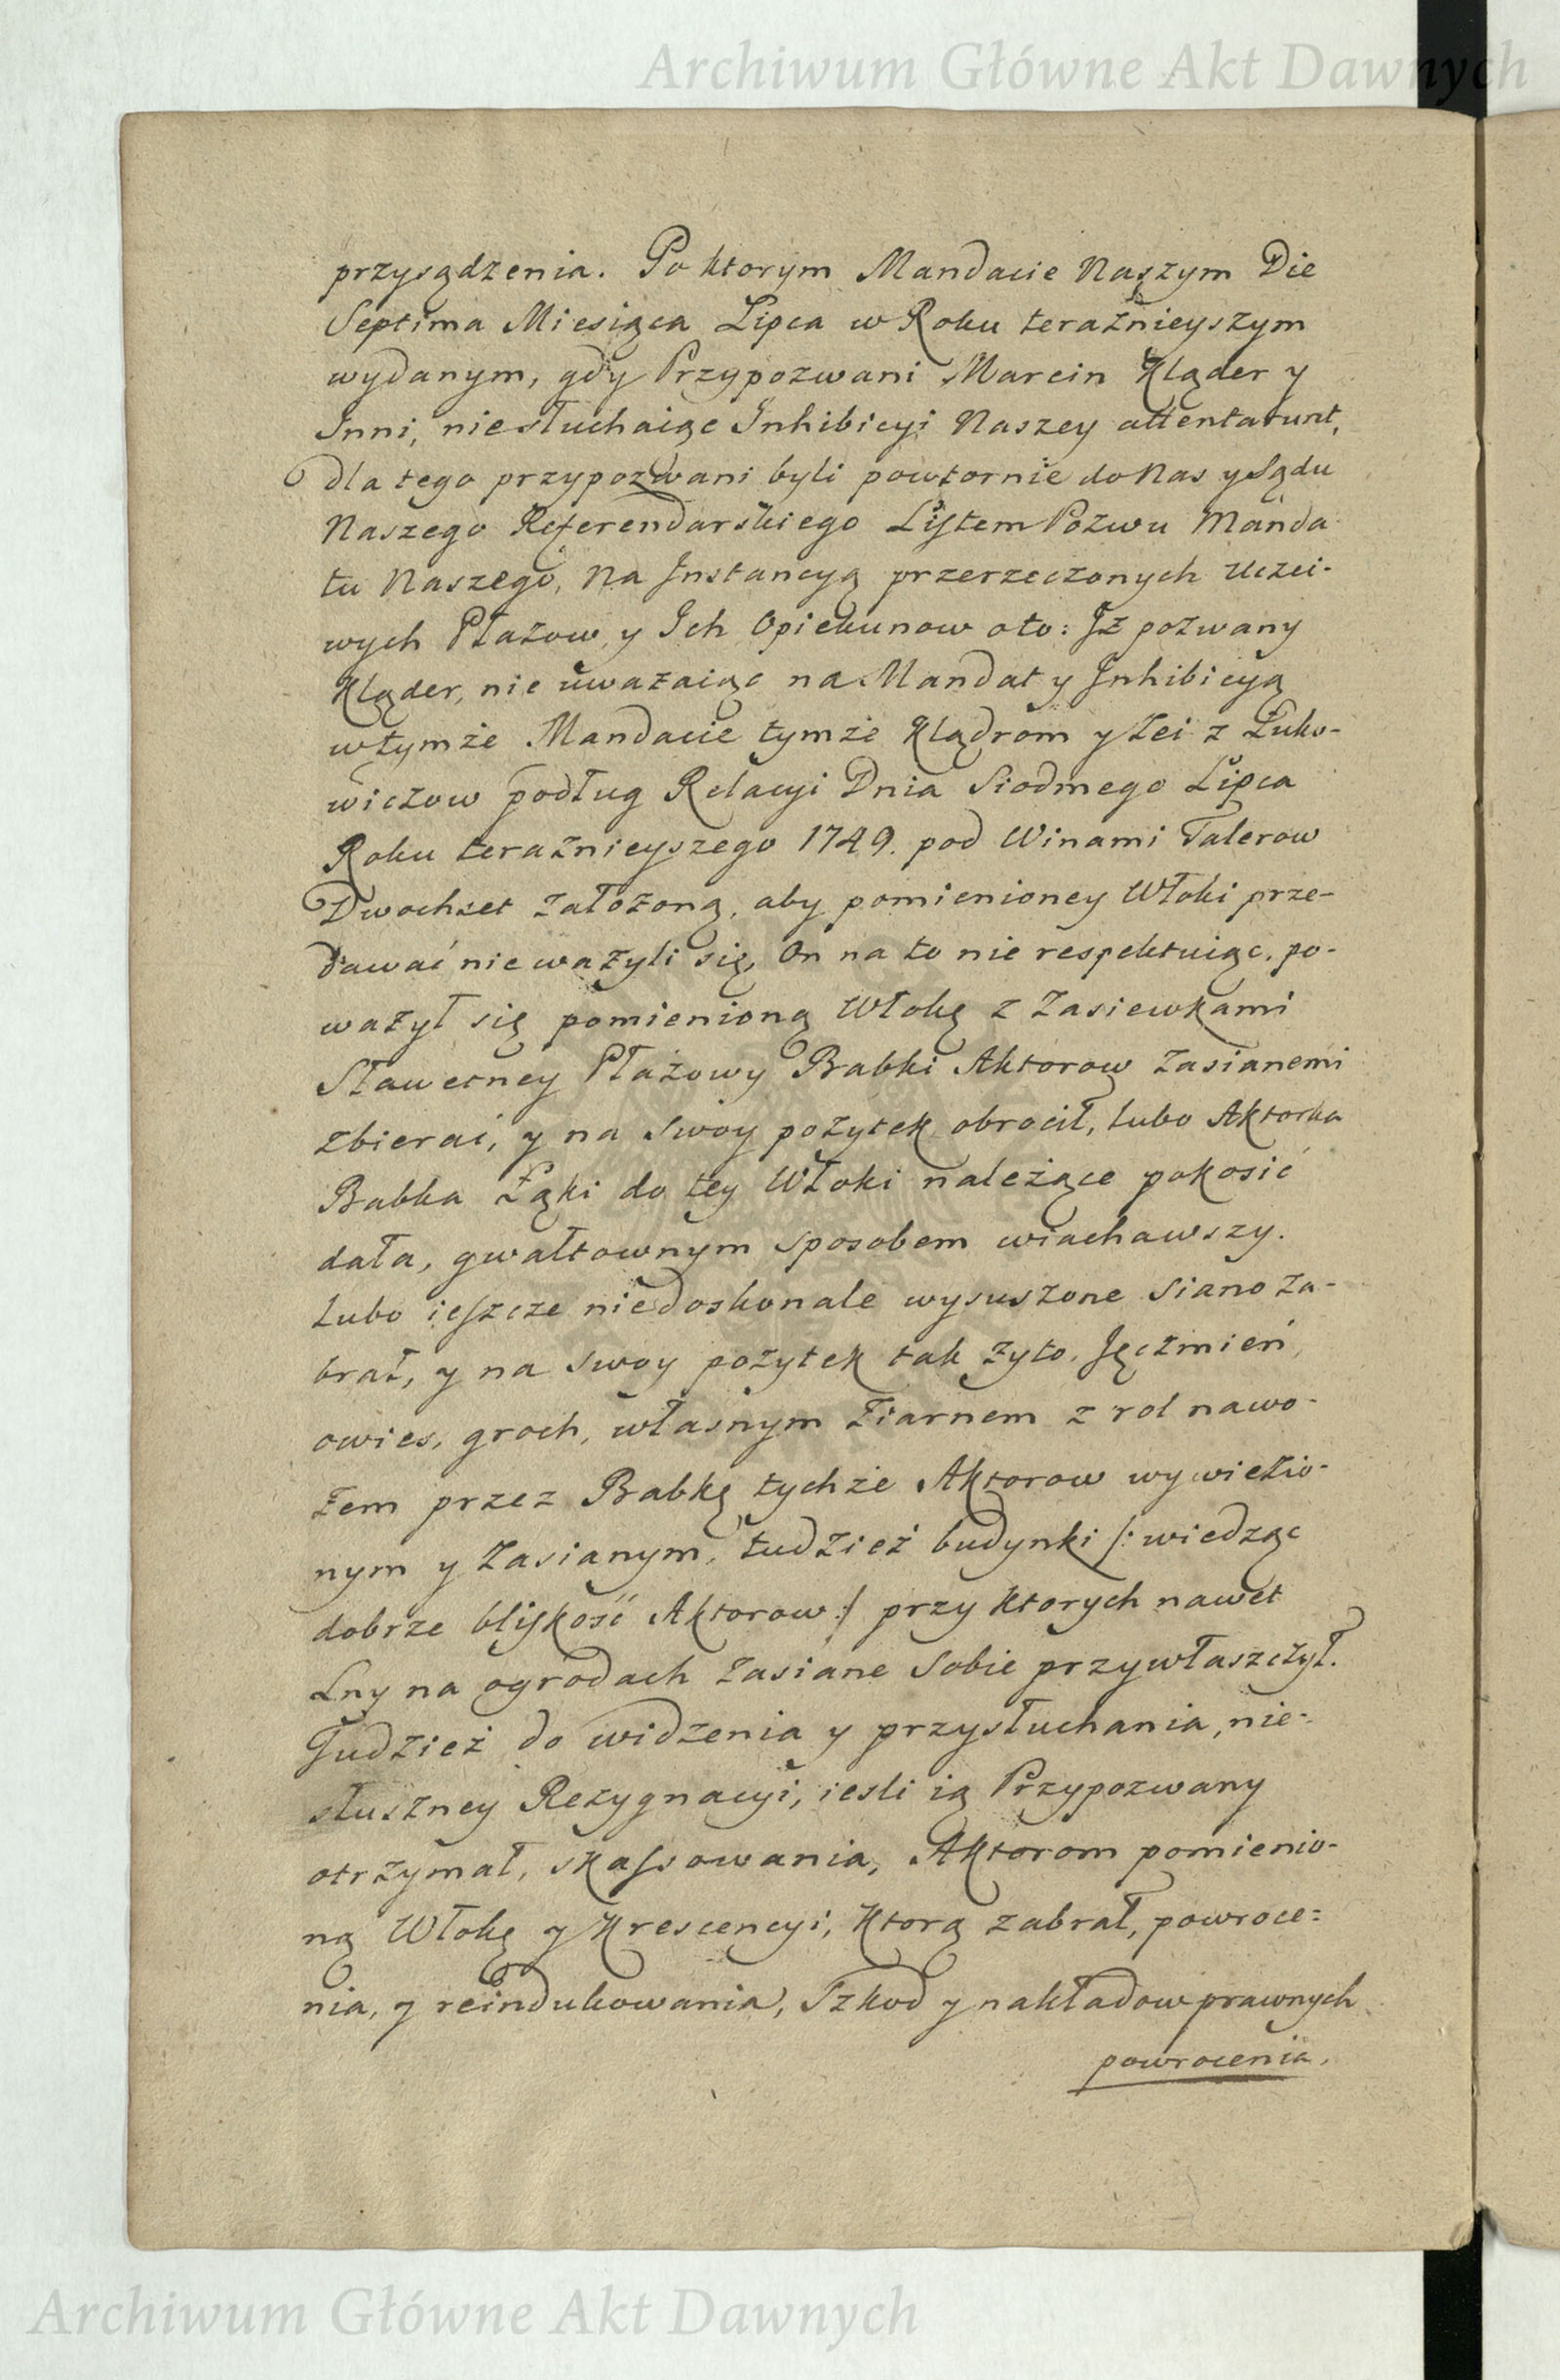 Archiwum Główne Akt Dawnych
przysądzenia. Po ktorym Mandacie Naszym Die
Septima Miesiąca Lipca w Roku teraznieyszym
wydanym, gdy Przypozwani Marcin Kląder y
Inni, niesłuchaiąc Inhibicyi Naszey attentarunt,
dla tego przypozwani byli powtornie do Nas y Sądu
Naszego Referendarskiego Listem Pozwu Manda-
tu Naszego, Na Instancyą przerzeczonych Uczci-
wych Płazow, y Ich Opiekunow oto: Iz pozwany
Kląder, nie uwazaiąc na Mandat y Inhibicyą
w tymże Mandacie tymże Klądrom y Zei z Łuko-
wiczow podług Relacyi Dnia Siodmego Lipca
Roku teraznieyszego 1749. pod Winami Talerow
Dwochset załozoną, aby pomienioney Włoki prze-
dawać nie wazyli się, On na to nie respektuiąc, po-
wazył się pomienioną Włokę z Zasiewkami
Sławetney Płażowy Babki Aktorow zasianemi
zbierać, y na swoy pozytek obrocił, lubo Aktorka
Babka Łąki do tey Włoki należące pokosić
dała, gwałtownym sposobem wiachawszy.
lubo ieszcze niedoskonale wysuszone Siano za-
brał, y na swoy pozytek tak zyto, Jęczmień,
owies, groch, własnym ziarnem z rol nawo-
zem przez Babkę tychże Aktorow wywiezio-
nym y Zasianym, tudzież budynki /: wiedząc
dobrze bliskość Aktorow :/ przy ktorych nawet
Lny na ogrodach zasiane Sobie przywłaszczył.
Tudzież do widzenia y przysłuchania, nie-
słuszney Rezygnacyi, iesli ią Przypozwany
otrzymał, skassowania, Aktorom pomienio-
ną Włokę y Krescencyi, ktorą zabrał, powroce=
nia, y reindukowania, Szkod y nakładow prawnych
powrocenia,
Archiwum Główne Akt Dawnych